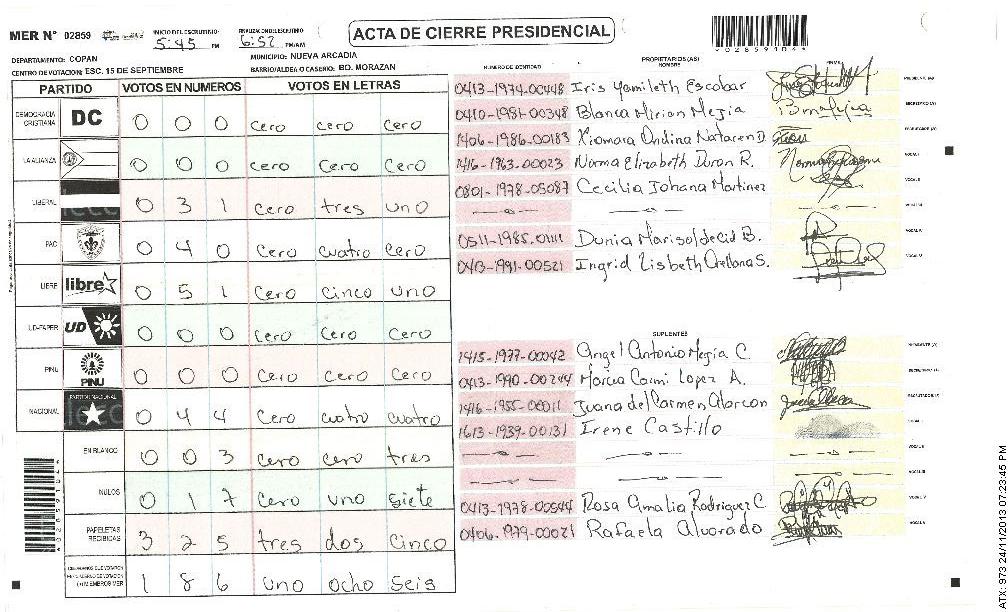 MER Nº 02859
INICIO DEL ESCRUTINIO: 5:45 PM
FINALIZACION DEL ESCRUTINIO 6:52 PM/AM
ACTA DE CIERRE PRESIDENCIAL
DEPARTAMENTO: COPAN
MUNICIPIO: NUEVA ARCADIA
CENTRO DE VOTACION: ESC. 15 DE SEPTIEMBRE
BARRIO/ALDEA O CASERIO: BO. MORAZAN
PARTIDO VOTOS EN NUMEROS VOTOS EN LETRAS
DEMOCRACIA CRISTIANA DC 0 0 0 cero cero cero
LA ALIANZA 0 0 0 cero cero cero
LIBERAL 0 3 1 cero tres uno
PAC 0 4 0 cero cuatro cero
LIBRE libre 0 5 1 cero cinco uno
UD-FAPER UD 0 0 0 cero cero cero
PINU PINU 0 0 0 cero cero cero
NACIONAL PARTIDO NACIONAL 0 4 4 cero cuatro cuatro
EN BLANCO 0 0 3 cero cero tres
NULOS 0 1 7 cero uno siete
PAPELETAS RECIBIDAS 3 2 5 tres dos cinco
1 8 6 uno ocho seis
PROPIETARIOS (AS)
NUMERO DE IDENTIDAD NOMBRE FIRMA
0413-1974-00448 Iris Yamileth Escobar
0410-1981-00348 Blanca Mirian Mejia
1406-1986-00183 Xiomara Ondina Nataren D.
1416-1763-00023 Norma Elizabeth Duron R.
0801-1978-05087 Cecilia Johana Martinez
0511-1985-01111 Dunia Marisol decid B.
0413-1991-00521 Ingrid Lisbeth Orellana S.
SUPLENTES
1415-1977-00042 Angel Antonio Mejia C.
0413-1990-00244 Marcia Carmi Lopez A.
1416-1955-00011 Juana del Carmen Alarcon
1613-1939-00131 Irene Castillo
0413-1978-00544 Rosa Amalia Rodriguez C
0406-1979-00021 Rafaela Alvarado
ATX: 973 24/11/2013 07:23:45 PM